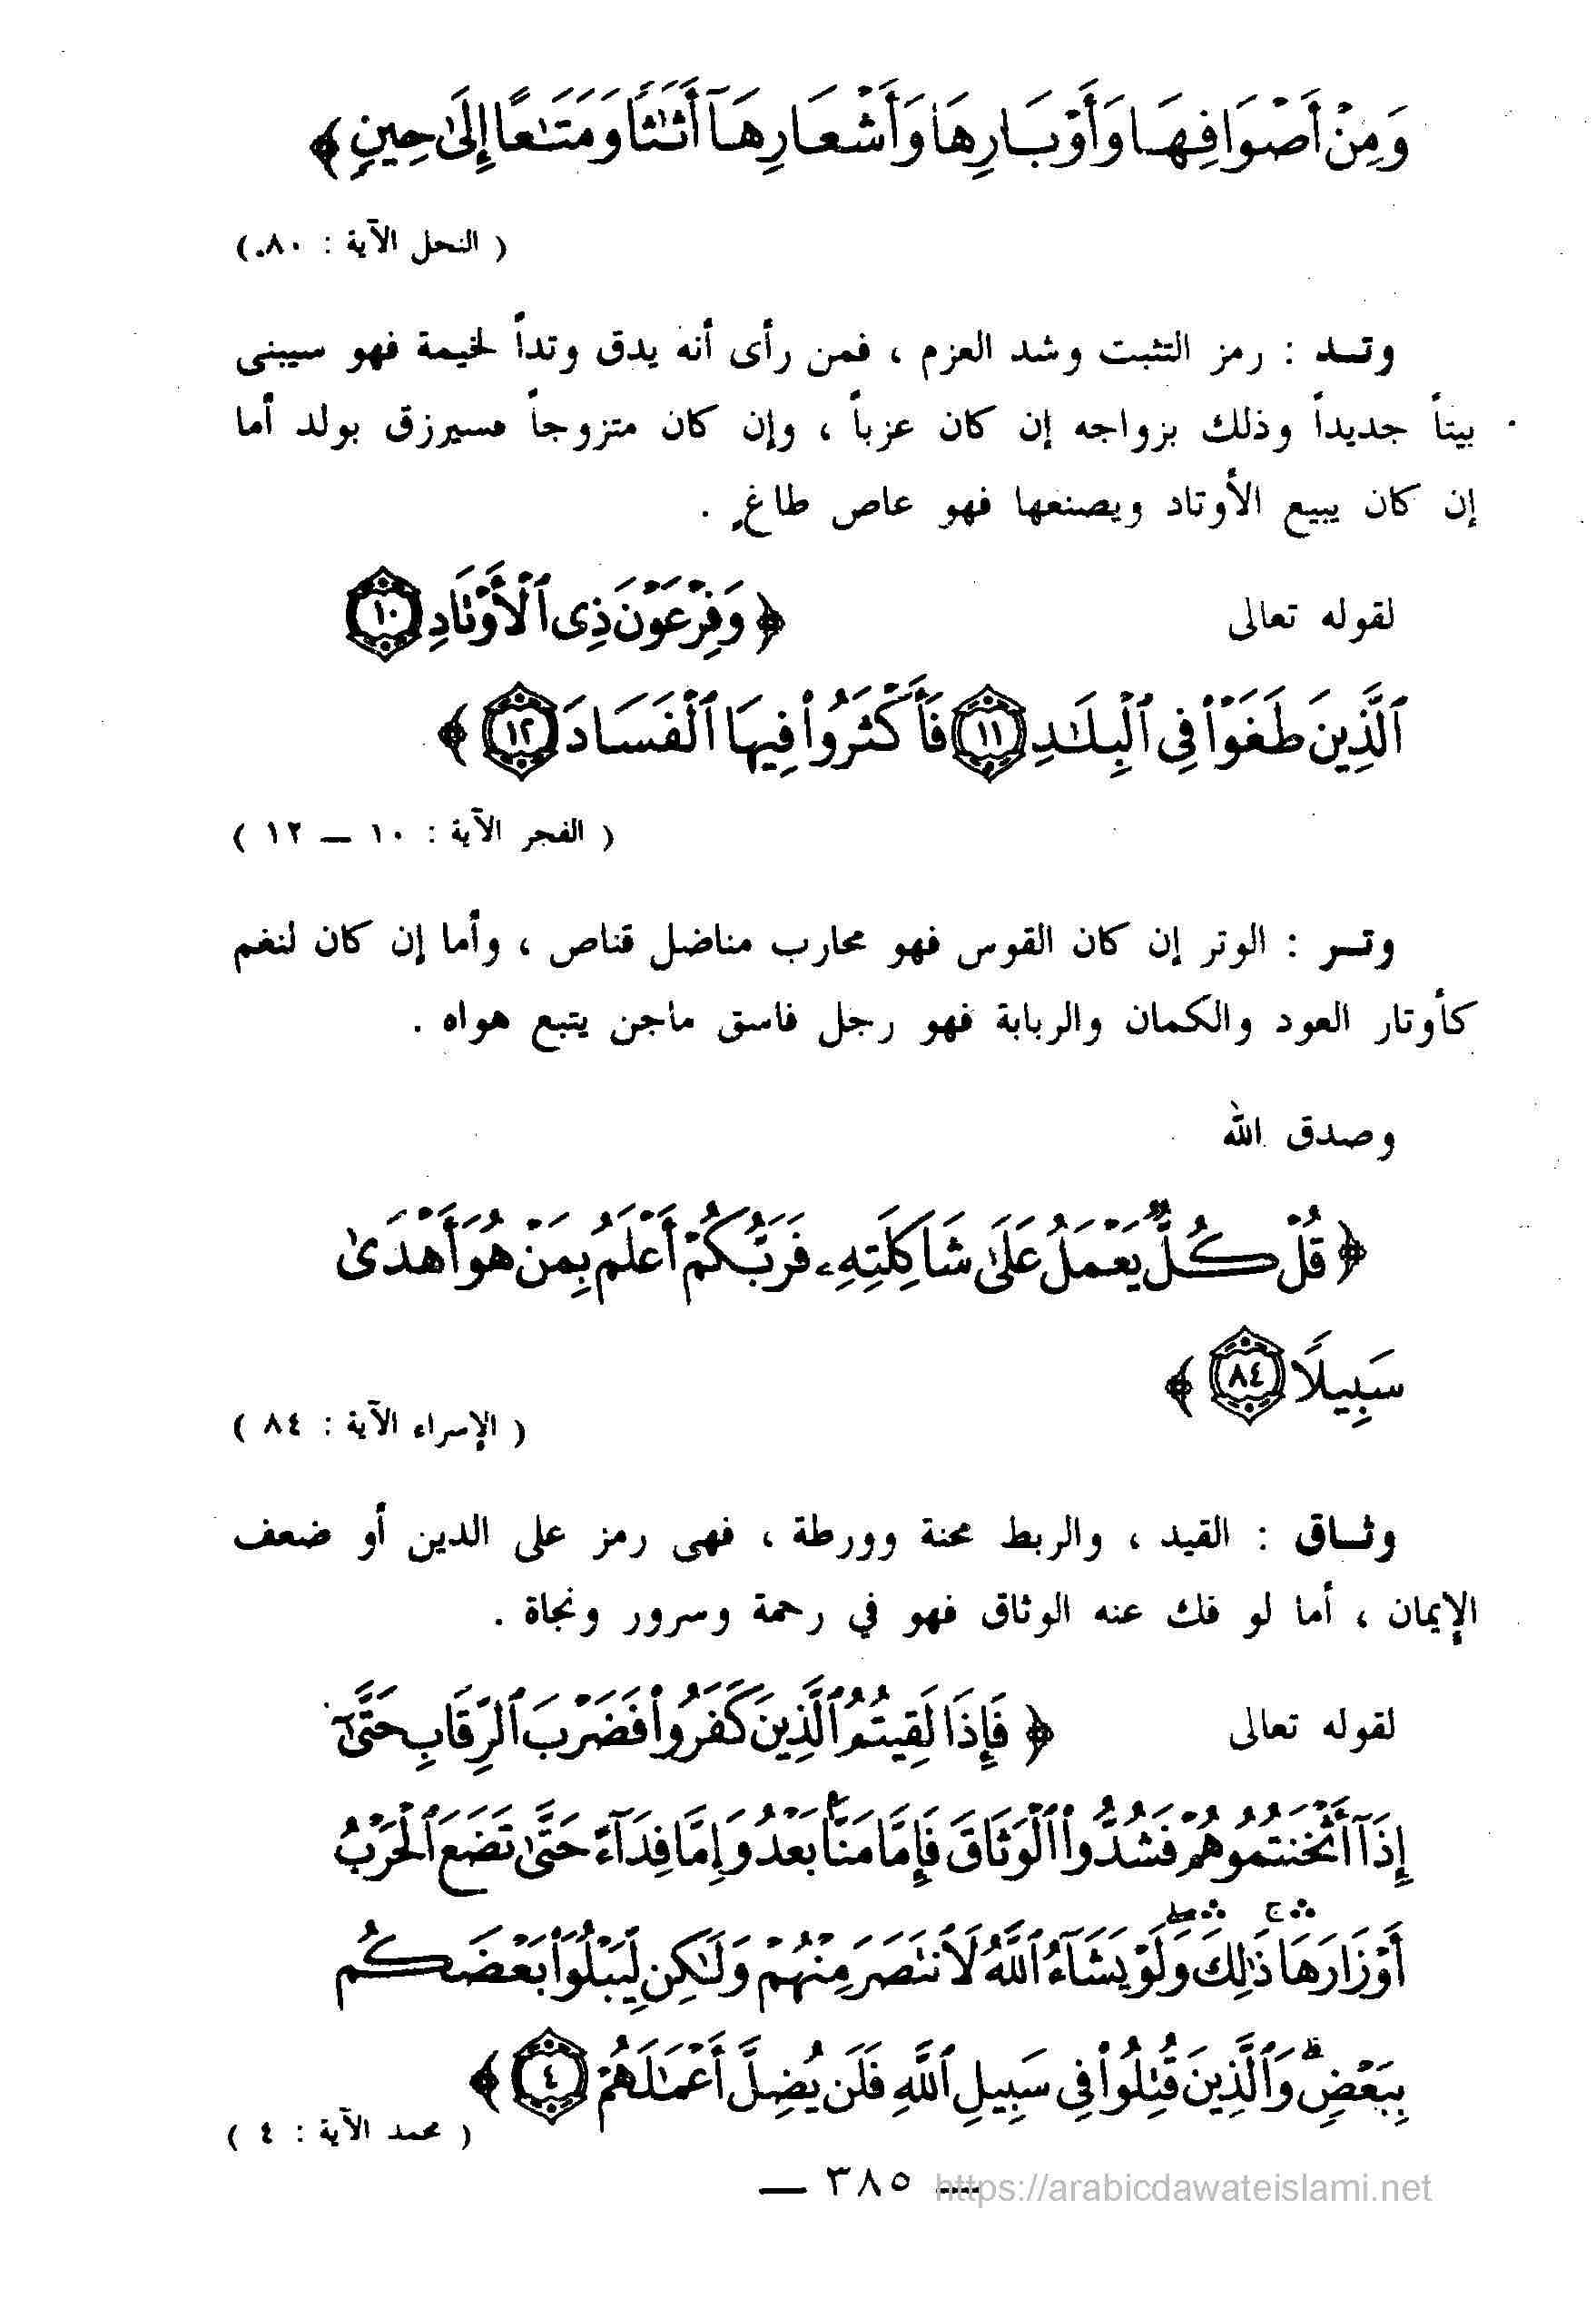 وَمِنْ أَصْوَافِهَا وَأَوْبَارِهَا وَأَشْعَارِهَآ أَثَٰثًا وَمَتَٰعًا إِلَىٰ حِينٍ ﴾
( النحل الآية : ٨٠.)
وتــد : رمز التثبت وشد العزم ، فمن رأى أنه يدق وتداً لخيمة فهو سيبنى
بيتاً جديداً وذلك بزواجه إن كان عزباً ، وإن كان متزوجاً فسيرزق بولد أما
إن كان يبيع الأوتاد ويصنعها فهو عاص طاغٍ .
لقوله تعالى ﴿ وَفِرْعَوْنَ ذِى ٱلْأَوْتَادِ ١٠
ٱلَّذِينَ طَغَوْا۟ فِى ٱلْبِلَٰدِ ١١ فَأَكْثَرُوا۟ فِيهَا ٱلْفَسَادَ ١٢ ﴾
( الفجر الآية : ١٠ — ١٢ )
وتــر : الوتر إن كان القوس فهو محارب مناضل قناص ، وأما إن كان لنغم
كأوتار العود والكمان والربابة فهو رجل فاسق ماجن يتبع هواه .
وصدق الله
﴿ قُلْ كُلٌّ يَعْمَلُ عَلَىٰ شَاكِلَتِهِۦ فَرَبُّكُمْ أَعْلَمُ بِمَنْ هُوَ أَهْدَىٰ
سَبِيلًا ٨٤ ﴾
( الإسراء الآية : ٨٤ )
وثــاق : القيد ، والربط محنة وورطة ، فهى رمز على الدين أو ضعف
الإيمان ، أما لو فك عنه الوثاق فهو في رحمة وسرور ونجاة .
لقوله تعالى ﴿ فَإِذَا لَقِيتُمُ ٱلَّذِينَ كَفَرُوا۟ فَضَرْبَ ٱلرِّقَابِ حَتَّىٰٓ
إِذَآ أَثْخَنتُمُوهُمْ فَشُدُّوا۟ ٱلْوَثَاقَ فَإِمَّا مَنًّۢا بَعْدُ وَإِمَّا فِدَآءً حَتَّىٰ تَضَعَ ٱلْحَرْبُ
أَوْزَارَهَا ۛ ۚ ذَٰلِكَ ۛ ۖ وَلَوْ يَشَآءُ ٱللَّهُ لَٱنتَصَرَ مِنْهُمْ وَلَٰكِن لِّيَبْلُوَا۟ بَعْضَكُم
بِبَعْضٍ ۗ وَٱلَّذِينَ قُتِلُوا۟ فِى سَبِيلِ ٱللَّهِ فَلَن يُضِلَّ أَعْمَٰلَهُمْ ٤ ﴾
( محمد الآية : ٤ )
— ٣٨٥ —
https://arabicdawateislami.net